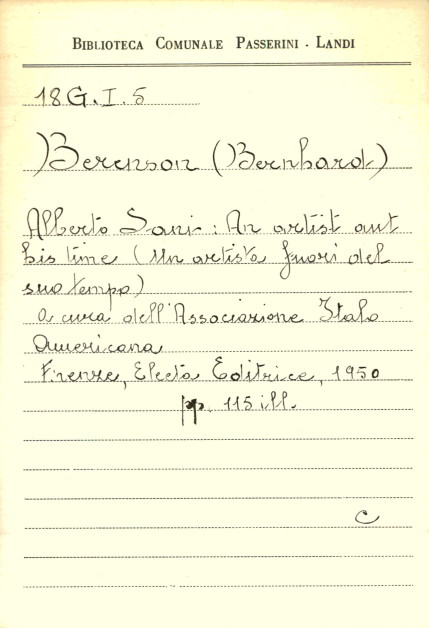 BIBLIOTECA COMUNALE PASSERINI - LANDI
18G.I.5
Berenson (Bernhard)
Alberto Sani: An artist aut
his time (Un artista fuori del
suo tempo)
a cura dell'Associazione Italo
Americana
Firenze, Electa Editrice, 1950
pp. 115 ill.
C